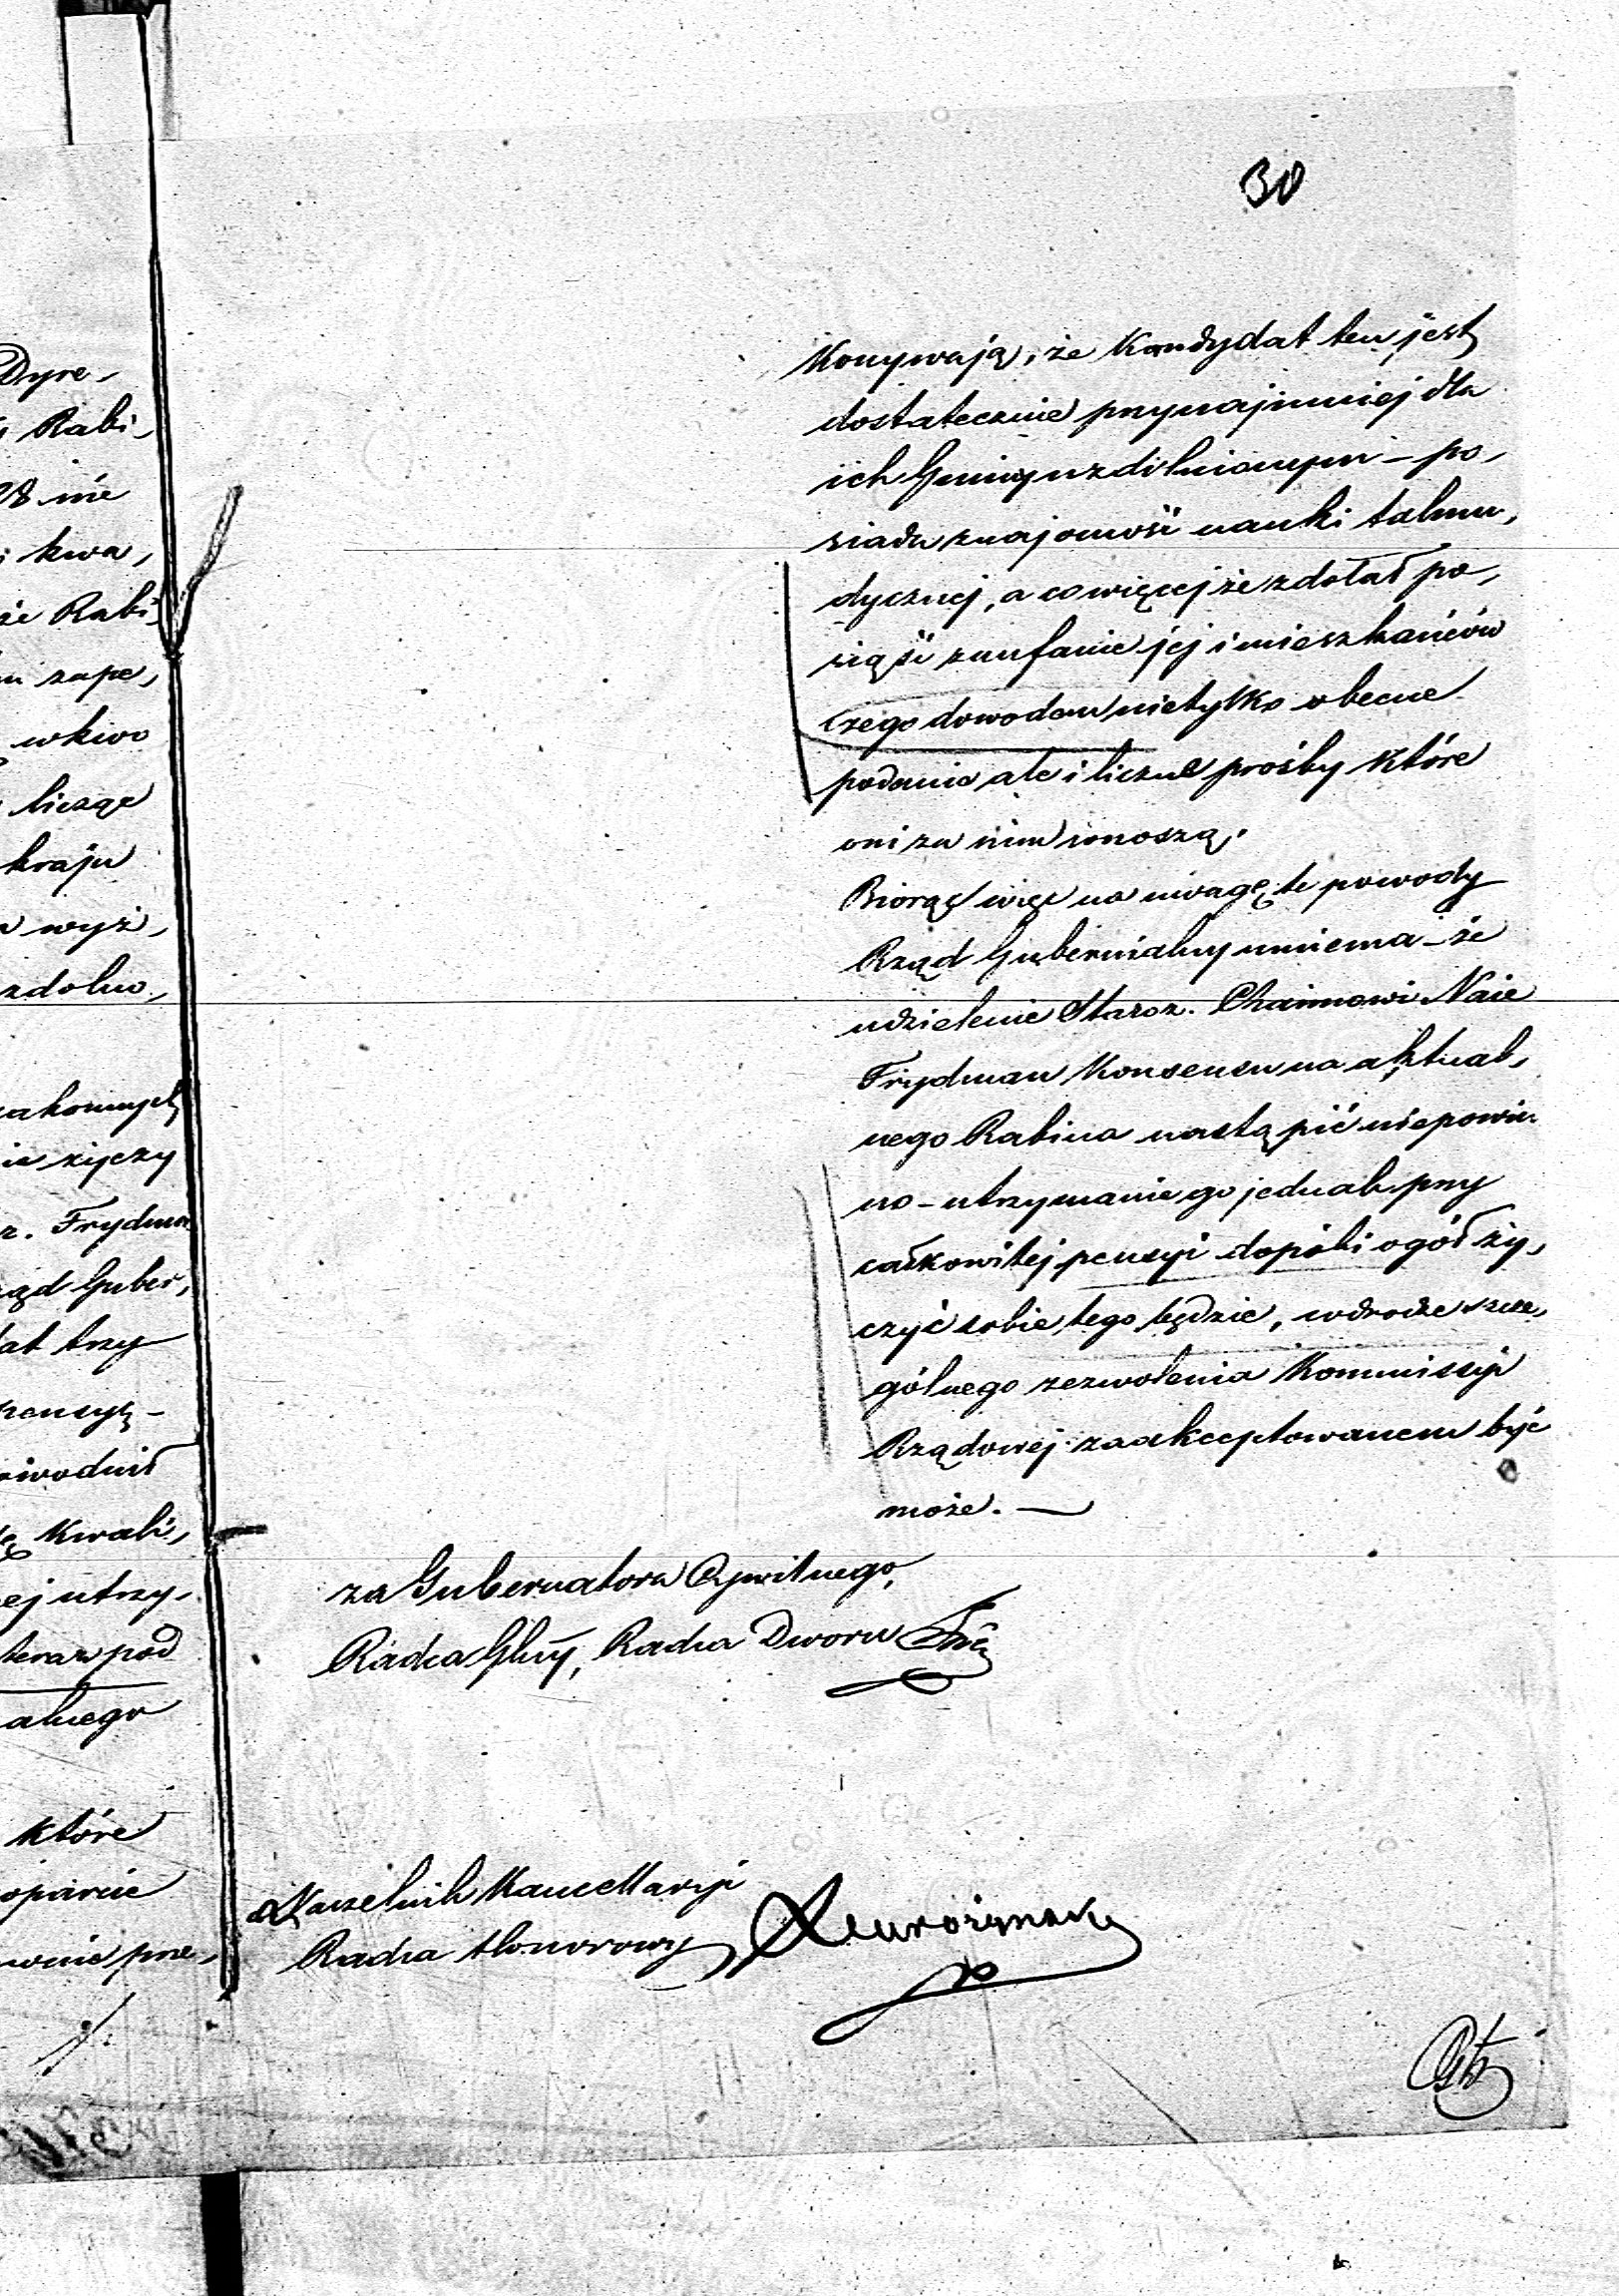 30
Dyre-
Rabi-
28 nie
i kwa-
że Rabi-
zape-
wkwo
licząc
kraju
wyż-
zdolno-
życzy
Frydma
Guber-
lat trzy
pensyą -
Kwali-
utrzy-
teraz pod
alnego
które
oparcie
prze-
konywają, że Kandydat ten jest
dostatecznie przynajmniej dla
ich Gminy uzdolnionym - po-
siada znajomość nauki talmu-
dycznej, a co więcej że zdołał po-
siąść zaufanie jej i mieszkańców
czego dowodem nietylko obecne
podanie ale i liczne prośby które
oni za nim wnoszą.
Biorąc więc na uwagę te powody
Rząd Gubernialny mniema - że
udzielenie Staroz. Chaimowi Naie
Frydman Konsensu na aktual-
nego Rabina nastąpić niepowin-
no - utrzymanie go jednak przy
całkowitej pensyi dopóki ogół ży-
czyć sobie tego będzie, w drodze szcze-
gólnego zezwolenia Kommissyi
Rządowej zaakceptowanem być
może. —
za Gubernatora Cywilnego,
Radca Głny, Radca Dworu
Naczelnik Kancellaryi
Radca Honorowy